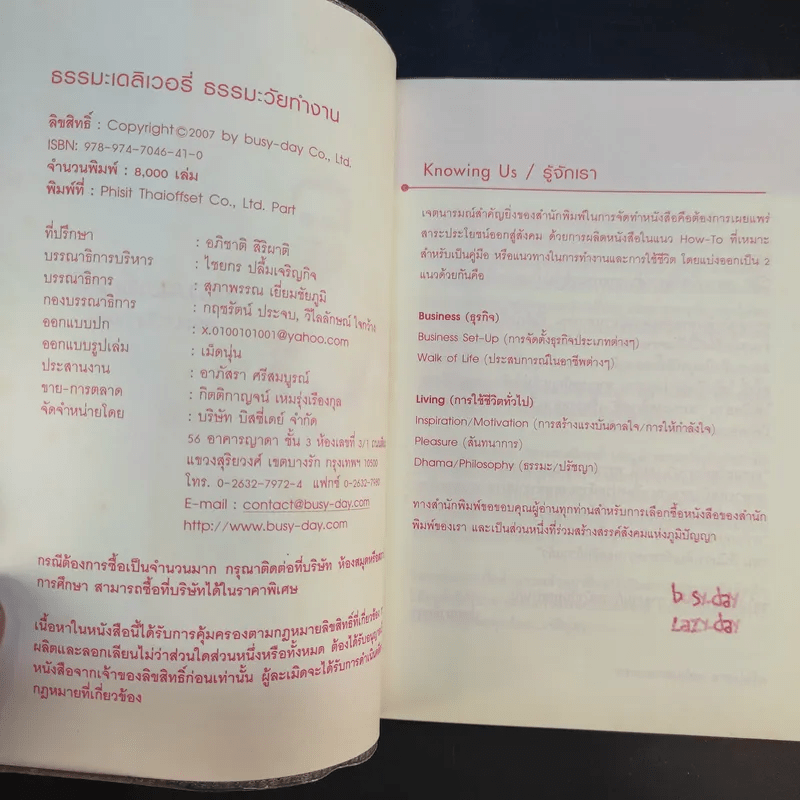 ธรรมะเดลิเวอรี่ ธรรมะวัยทำงาน
ลิขสิทธิ์ : Copyright©2007 by busy-day Co., Ltd.
ISBN: 978-974-7046-41-0
จำนวนพิมพ์ : 8,000 เล่ม
พิมพ์ที่ : Phisit Thaioffset Co., Ltd. Part
ที่ปรึกษา : อภิชาติ สิริผาติ
บรรณาธิการบริหาร : ไชยกร ปลื้มเจริญกิจ
บรรณาธิการ : สุภาพรรณ เยี่ยมชัยภูมิ
กองบรรณาธิการ : กฤชรัตน์ ประจบ, วิไลลักษณ์ ใจกว้าง
ออกแบบปก : x.0100101001@yahoo.com
ออกแบบรูปเล่ม : เม็ดนุ่น
ประสานงาน : อาภัสรา ศรีสมบูรณ์
ขาย-การตลาด : กิตติกาญจน์ เหมรุ่งเรืองกุล
จัดจำหน่ายโดย : บริษัท บิสซี่เดย์ จำกัด
56 อาคารญาดา ชั้น 3 ห้องเลขที่ 3/1
แขวงสุริยวงศ์ เขตบางรัก กรุงเทพฯ 10500
โทร. 0-2632-7972-4 แฟกซ์
E-mail : contact@busy-day.com
http://www.busy-day.com
กรณีต้องการซื้อเป็นจำนวนมาก กรุณาติดต่อที่บริษัท ห้องสมุดหรือ
การศึกษา สามารถซื้อที่บริษัทได้ในราคาพิเศษ
เนื้อหาในหนังสือนี้ได้รับการคุ้มครองตามกฎหมายลิขสิทธิ์ที่เกี่ยวข้อง
ผลิตและลอกเลียนไม่ว่าส่วนใดส่วนหนึ่งหรือทั้งหมด ต้องได้รับ
หนังสือจากเจ้าของลิขสิทธิ์ก่อนเท่านั้น ผู้ละเมิดจะได้รับการ
กฎหมายที่เกี่ยวข้อง
Knowing Us / รู้จักเรา
เจตนารมณ์สำคัญยิ่งของสำนักพิมพ์ในการจัดทำหนังสือคือต้องการเผยแพร่
สาระประโยชน์ออกสู่สังคม ด้วยการผลิตหนังสือในแนว How-To ที่เหมาะ
สำหรับเป็นคู่มือ หรือแนวทางในการทำงานและการใช้ชีวิต โดยแบ่งออกเป็น 2
แนวด้วยกันคือ
Business (ธุรกิจ)
Business Set-Up (การจัดตั้งธุรกิจประเภทต่างๆ)
Walk of Life (ประสบการณ์ในอาชีพต่างๆ)
Living (การใช้ชีวิตทั่วไป)
Inspiration/Motivation (การสร้างแรงบันดาลใจ/การให้กำลังใจ)
Pleasure (สันทนาการ)
Dhama/Philosophy (ธรรมะ/ปรัชญา)
ทางสำนักพิมพ์ขอขอบคุณผู้อ่านทุกท่านสำหรับการเลือกซื้อหนังสือของสำนัก
พิมพ์ของเรา และเป็นส่วนหนึ่งที่ร่วมสร้างสรรค์สังคมแห่งภูมิปัญญา
busy-day
Lazy-day